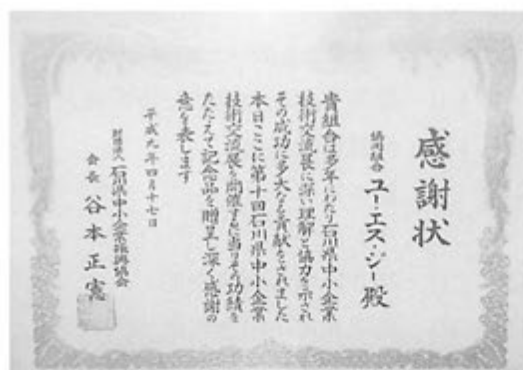 感謝状
協同組合 ユー・エス・ジー 殿
貴組合は多年にわたり石川県中小企業
技術交流展に深い理解と協力を示され
その成功に多大なる貢献をされました
本日ここに第十回石川県中小企業
技術交流展を開催するに当りその功績を
たたえて記念品を贈呈し深く感謝の
意を表します
平成九年四月十七日
財団法人 石川県中小企業振興協会
会長 谷本正憲